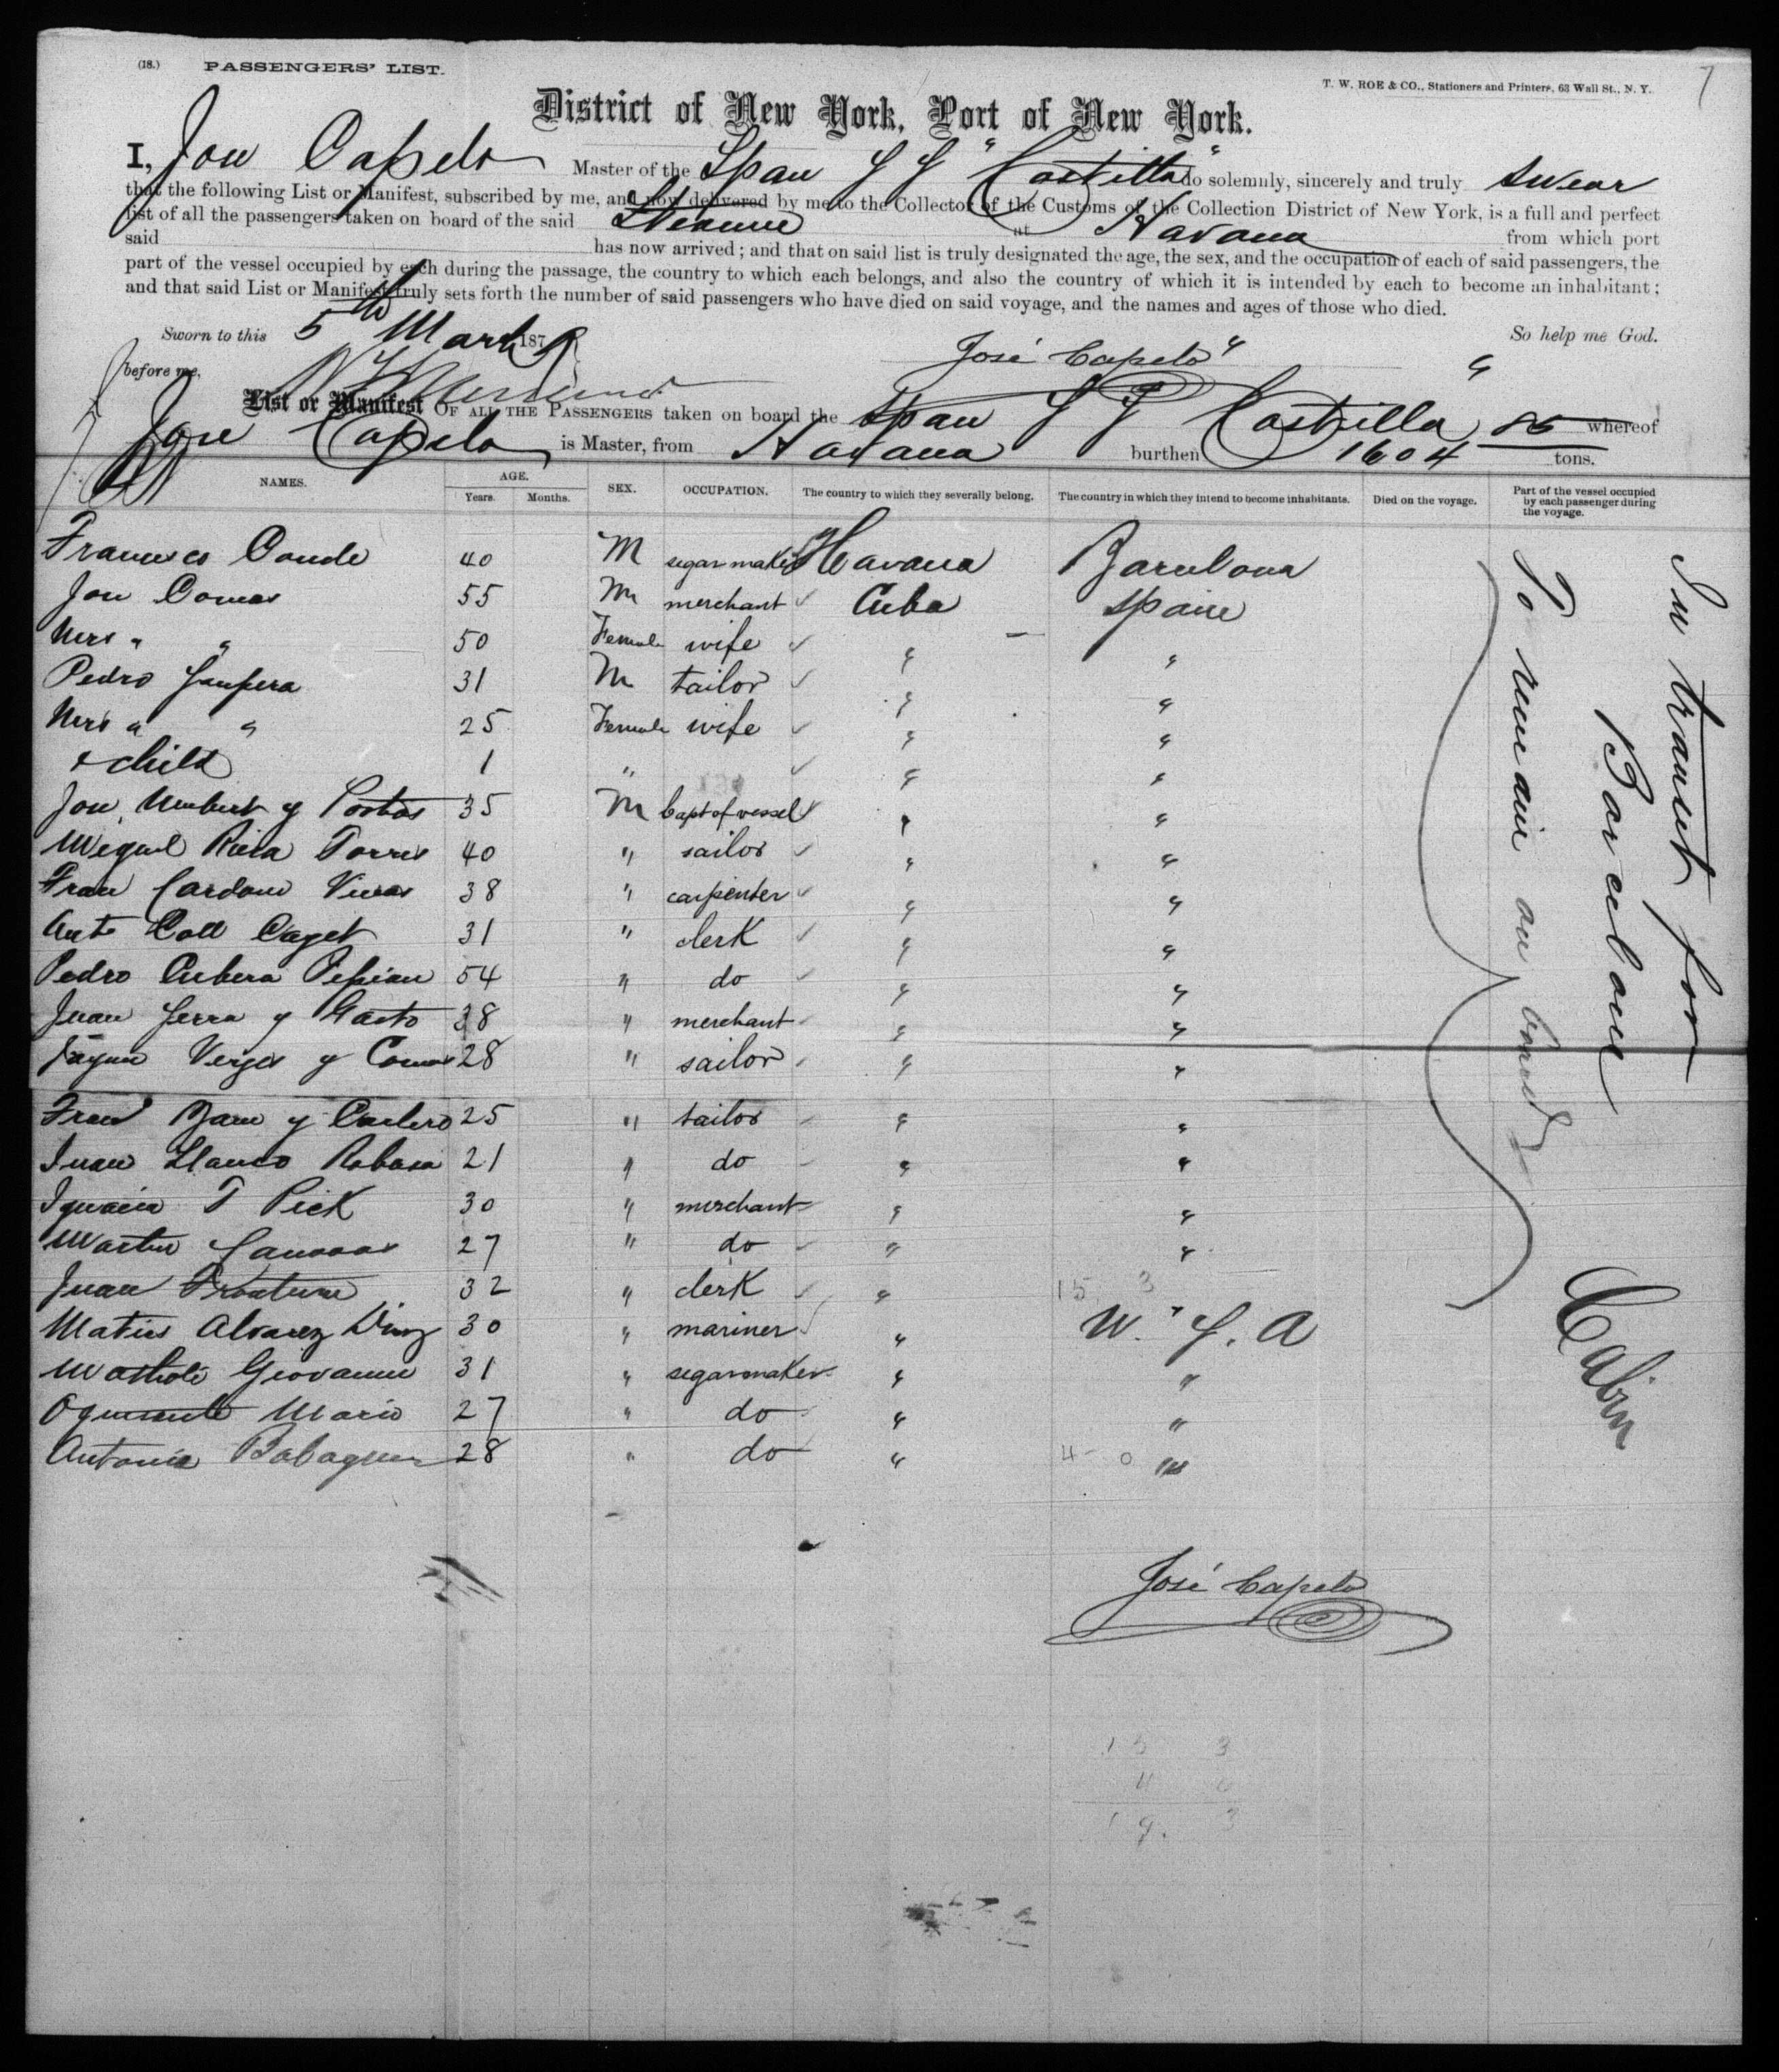 (18.) PASSENGERS' LIST.
T. W. ROE & CO., Stationers and Printers, 63 Wall St., N. Y.
7
District of New York, Port of New York.
I, Jose Capelo Master of the Span S S "Castilla" do solemnly, sincerely and truly swear
that the following List or Manifest, subscribed by me, and now delivered by me to the Collector of the Customs of the Collection District of New York, is a full and perfect
list of all the passengers taken on board of the said Steamer at Havana from which port
said has now arrived; and that on said list is truly designated the age, the sex, and the occupation of each of said passengers, the
part of the vessel occupied by each during the passage, the country to which each belongs, and also the country of which it is intended by each to become an inhabitant;
and that said List or Manifest truly sets forth the number of said passengers who have died on said voyage, and the names and ages of those who died.
Sworn to this 5th March 1879 So help me God.
before me, José Capelo
List or Manifest OF ALL THE PASSENGERS taken on board the Span S S "Castilla" whereof
Jose Capelo is Master, from Havana burthen 1604 tons.
NAMES. AGE. Years. Months. SEX. OCCUPATION. The country to which they severally belong. The country in which they intend to become inhabitants. Died on the voyage. Part of the vessel occupied by each passenger during the voyage.
Francisco Conde 40 M segar maker Havana Barcelona
Jose Comas 55 M merchant Cuba Spain
Mrs " " 50 Female wife " "
Pedro Sanpera 31 M tailor " "
Mrs " " 25 Female wife " "
& child 1 " " "
Jose Umbert y Portas 35 M Capt of vessel " "
Miguel Riera Torres 40 " sailor " "
Fran Cardona Vivas 38 " carpenter " "
Ant Coll Caget 31 " clerk " "
Pedro Cubera Pepian 54 " do " "
Juan Serra y Gasto 38 " merchant " "
Jayme Verges y Comas 28 " sailor " "
Fran 25 " sailor " "
Juan Llanso Rabasa 21 " do " "
Ignacia T Pick 30 " merchant " "
Martin Canovas 27 " do " "
Juan 32 " clerk "
15 3
Matias Alvarez Diaz 30 " mariner " U. S. A
Giovanni 31 " segarmaker " "
Mario 27 " do " "
Antonia Balaguer 28 " do " 4 - 0 "
In transit for
Barcelona
To remain on board
Cabin
José Capelo
15 3
4 0
19. 3